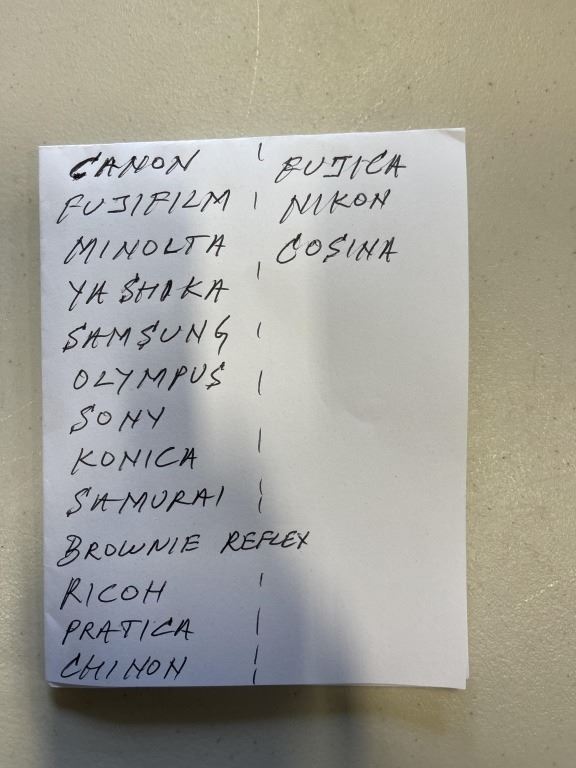 CANON
FUJIFILM
MINOLTA
YASHIKA
SAMSUNG
OLYMPUS
SONY
KONICA
SAMURAI
BROWNIE REFLEX
RICOH
PRATICA
CHINON
FUJICA
NIKON
COSINA